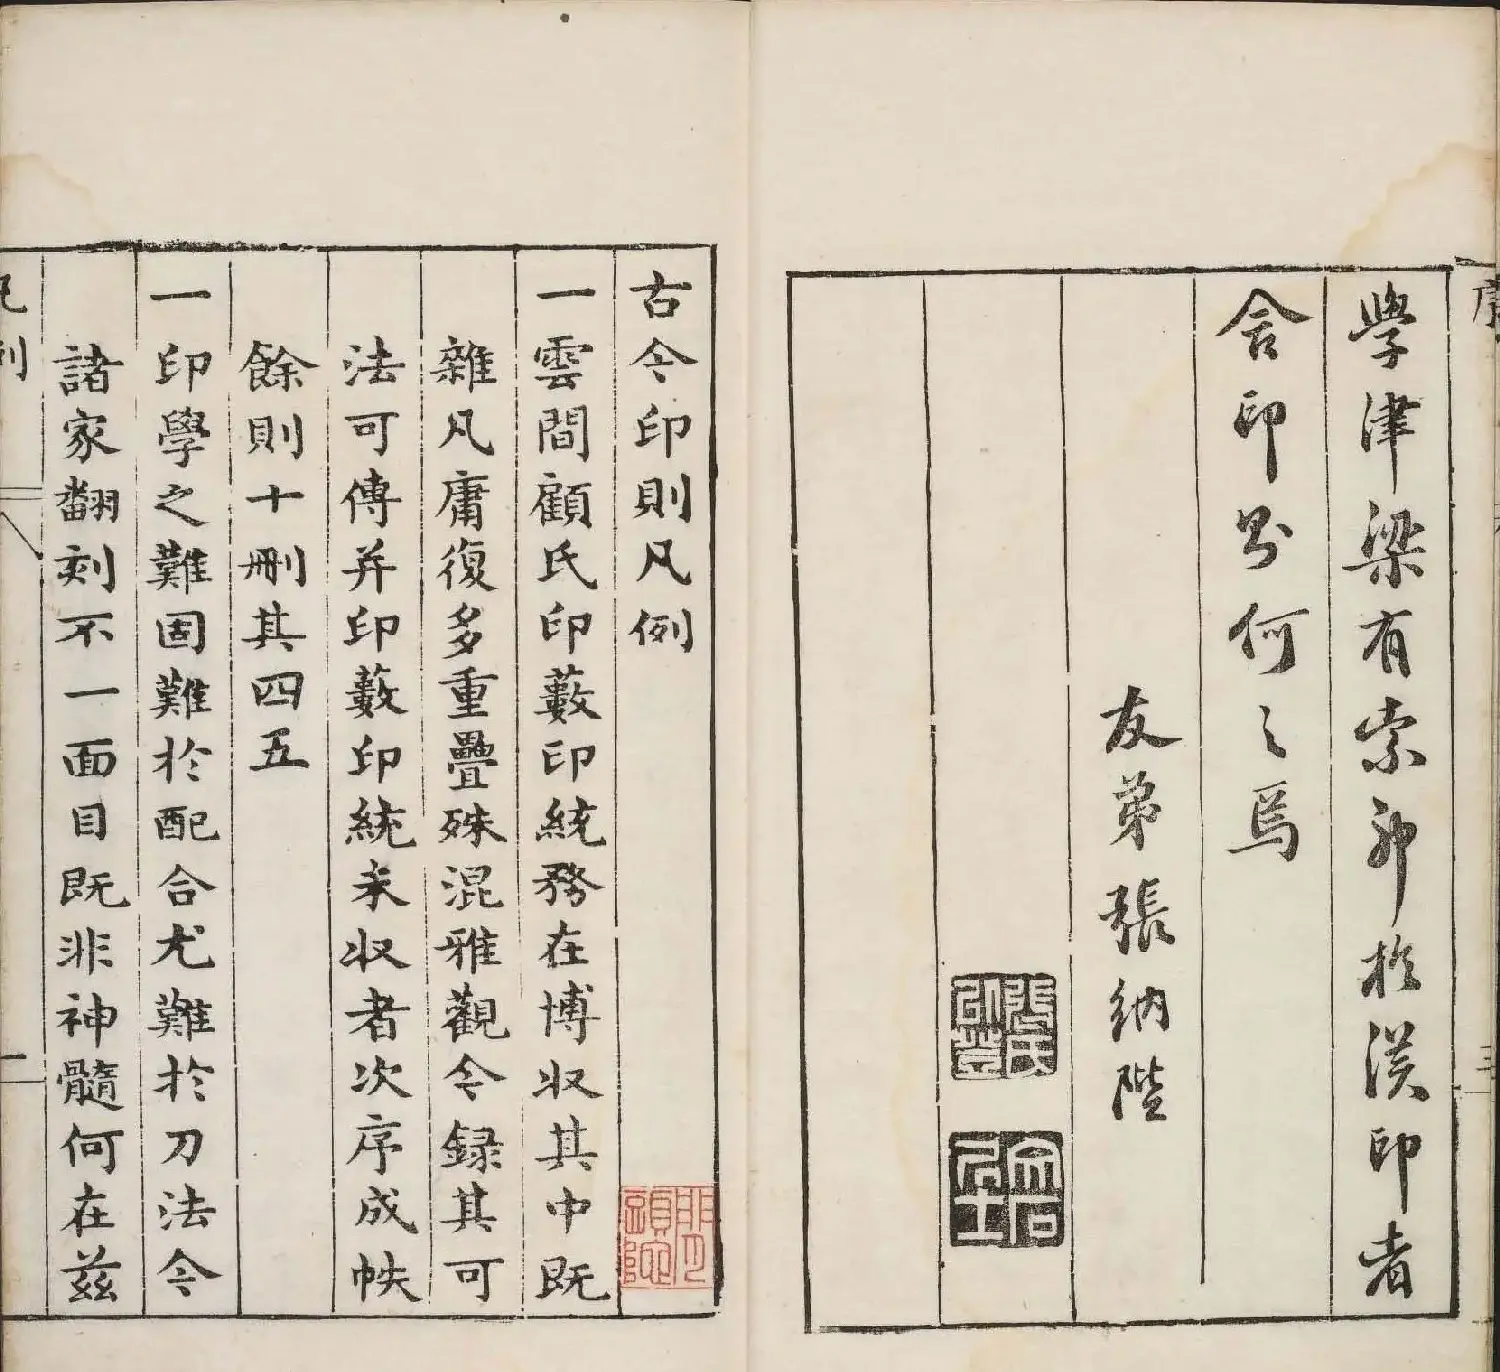 序
三
學津梁有索於漢印者
舍印則何之焉
友弟張納陛
古今印則凡例
一雲間顧氏印藪印統務在博収其中既
雜凡庸復多重疊殊混雅觀今録其可
法可傳并印藪印統未収者次序成帙
餘則十刪其四五
一印學之難固難於配合尤難於刀法今
諸家翻刻不一面目既非神髓何在茲
凡例
一